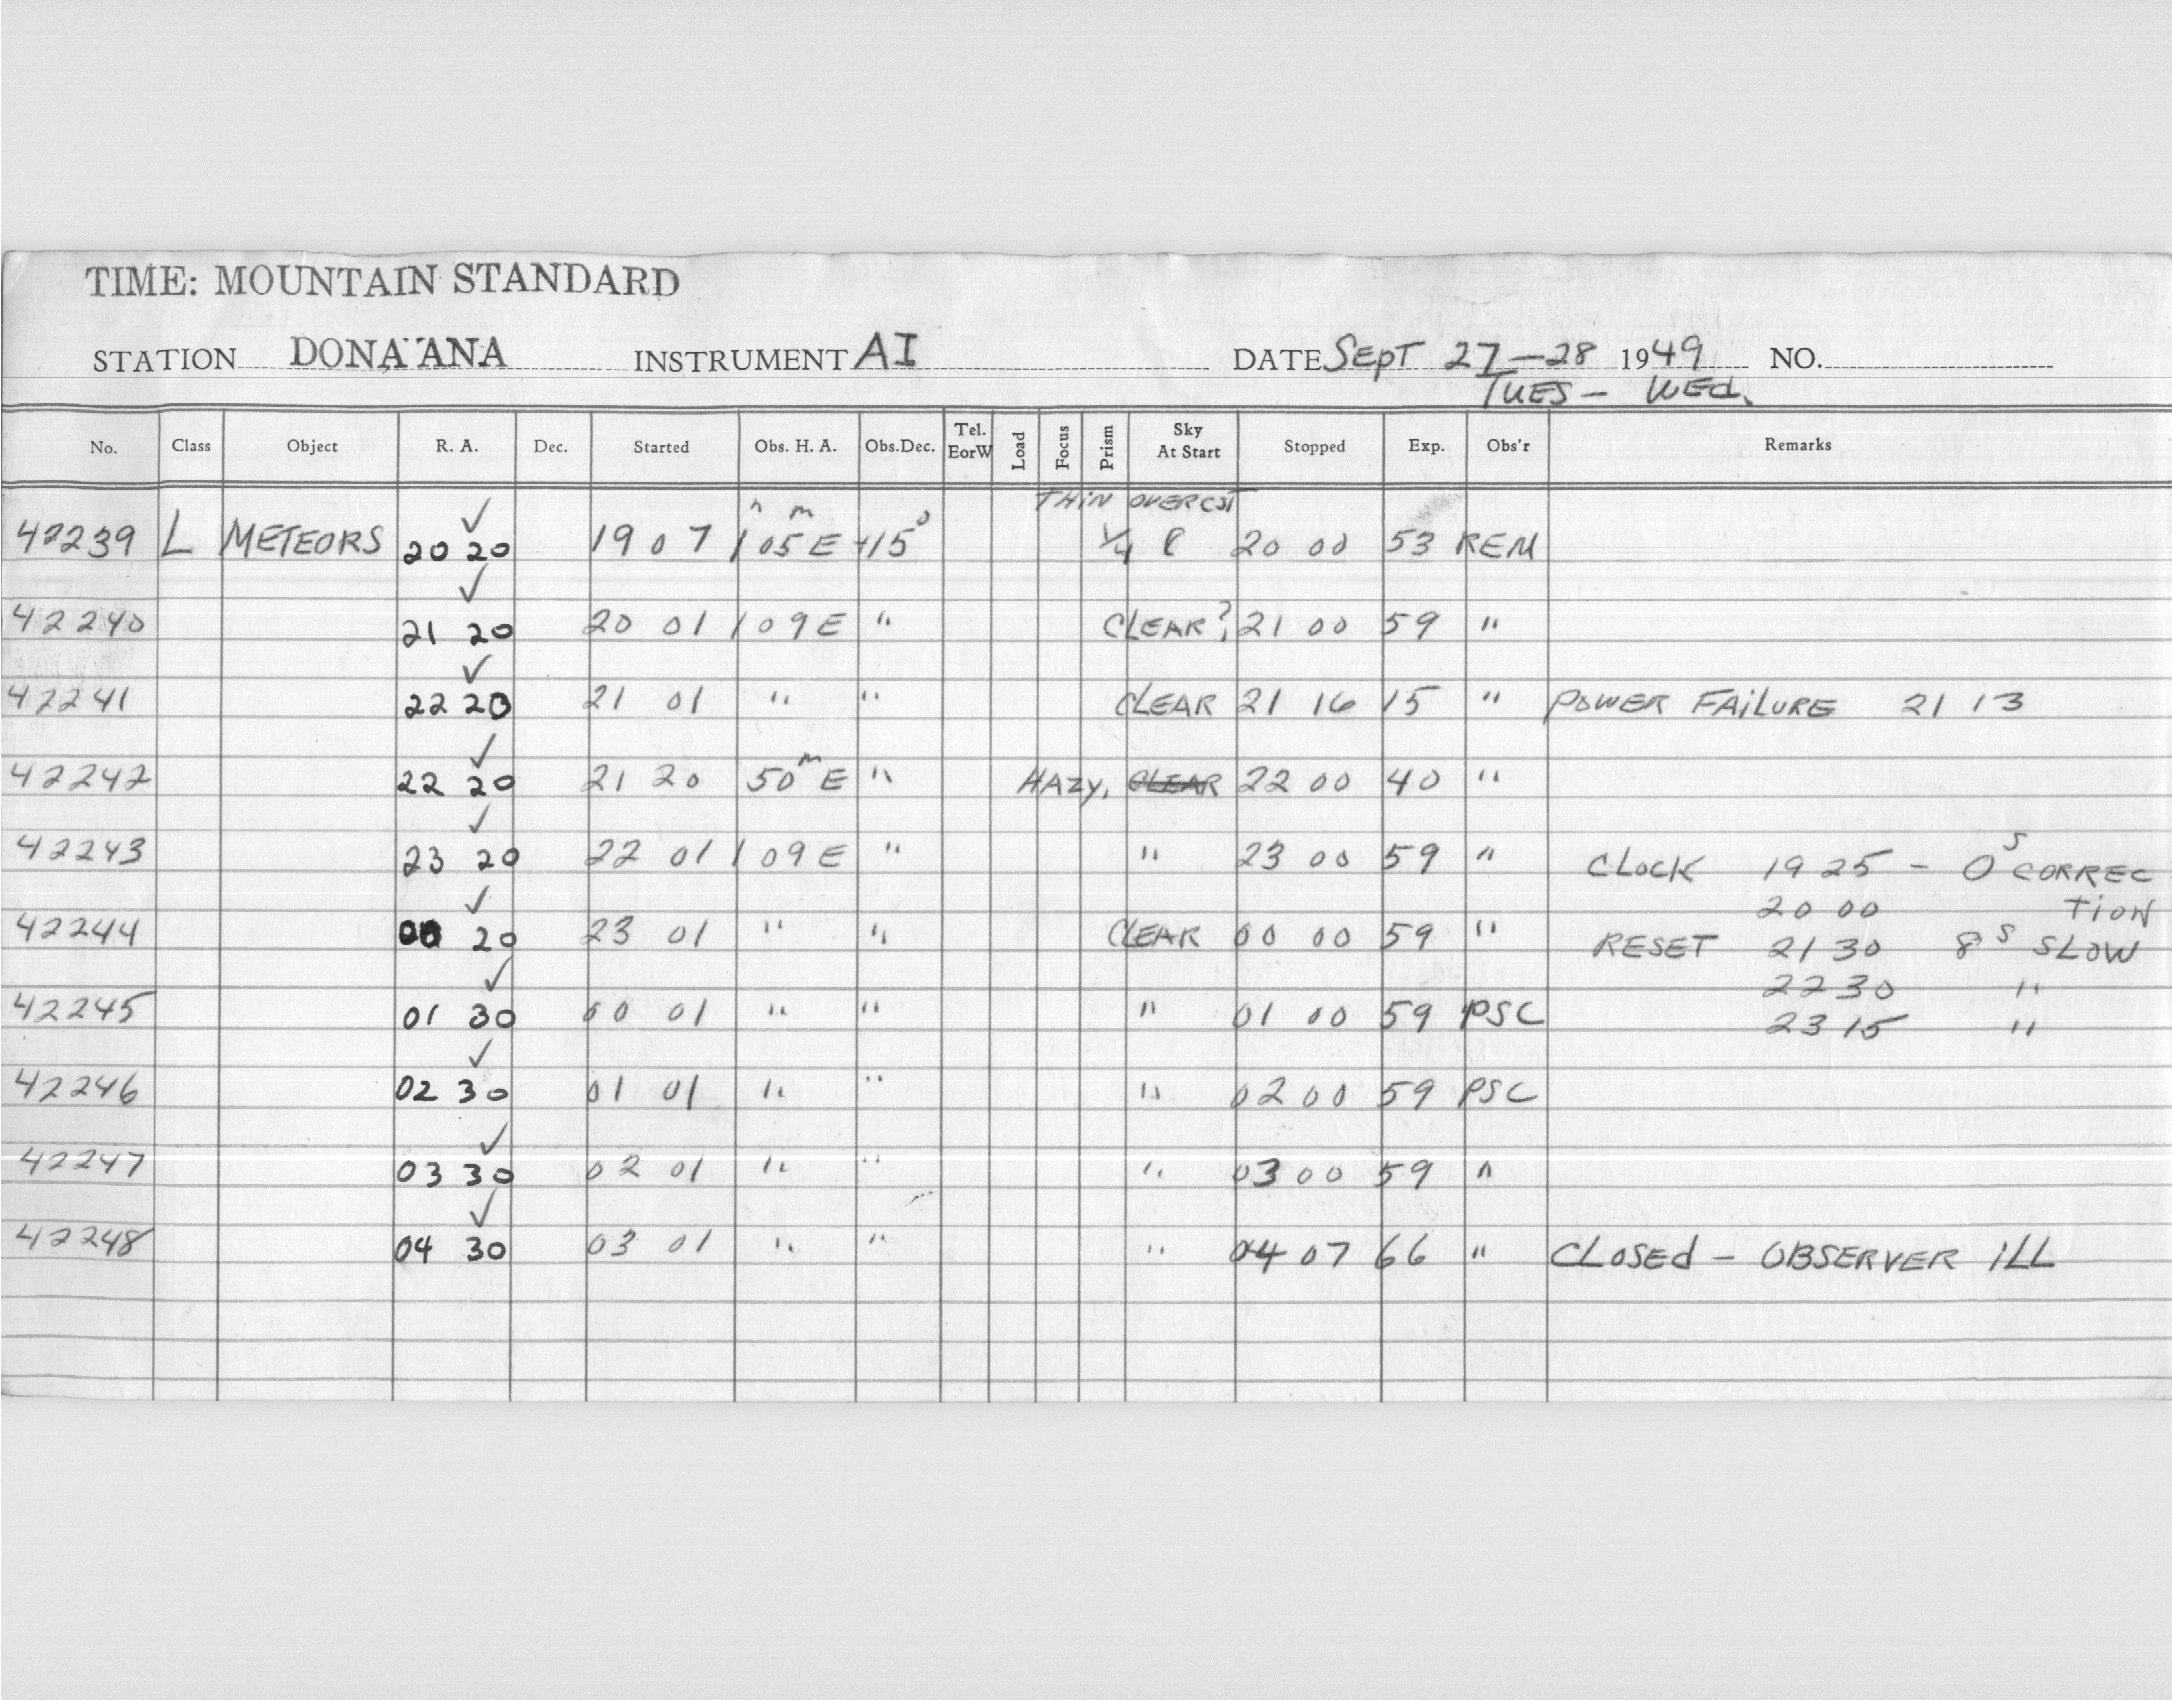 TIME: MOUNTAIN STANDARD
STATION DONA ANA INSTRUMENT AI DATE SEPT 27-28 1949 NO.
TUES - WED.
No. Class Object R. A. Dec. Started Obs. H. A. Obs.Dec. Tel. EorW Load Focus Prism Sky At Start Stopped Exp. Obs'r Remarks
THIN OVERCST
42239 L METEORS 20 20 ✓ 19 07 1h 05m E +15° 1/4 20 00 53 REM
42240 21 20 ✓ 20 01 1 09 E " CLEAR? 21 00 59 "
42241 22 20 ✓ 21 01 " " CLEAR 21 16 15 " POWER FAILURE 21 13
42242 22 20 ✓ 21 20 50m E " HAZY, CLEAR 22 00 40 "
42243 23 20 ✓ 22 01 1 09 E " " 23 00 59 " CLOCK 19 25 - 0s CORREC
20 00 TION
42244 00 20 ✓ 23 01 " " CLEAR 00 00 59 " RESET 21 30 8s SLOW
22 30 "
42245 01 30 ✓ 00 01 " " " 01 00 59 PSC 23 15 "
42246 02 30 ✓ 01 01 " " " 02 00 59 PSC
42247 03 30 ✓ 02 01 " " " 03 00 59 "
42248 04 30 ✓ 03 01 " " " 04 07 66 " CLOSED - OBSERVER ILL